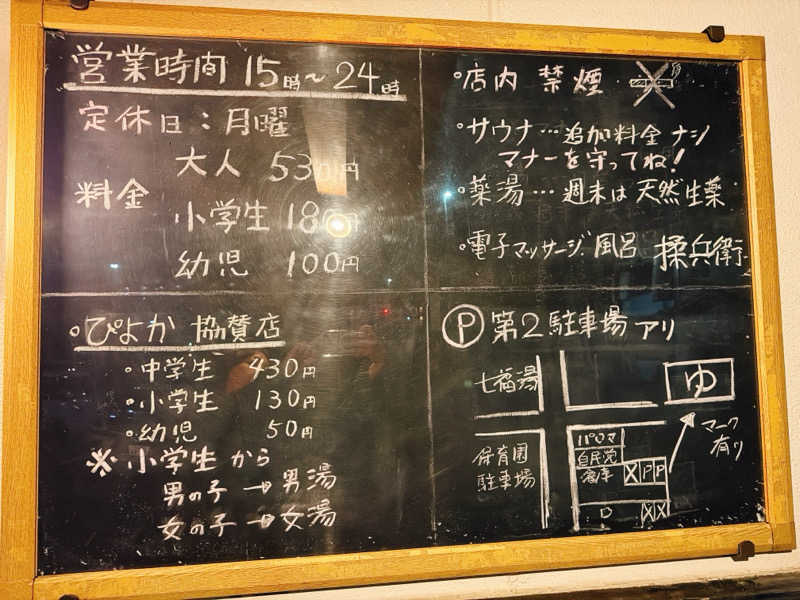 営業時間 15時～24時
定休日：月曜
料金
大人 530円
小学生 180円
幼児 100円
。店内 禁煙
。サウナ…追加料金ナシ
マナーを守ってね！
。薬湯…週末は天然生薬
。電子マッサージ風呂 揉兵衛
。ぴよか 協賛店
。中学生 430円
。小学生 130円
。幼児 50円
※小学生から
男の子→男湯
女の子→女湯
Ⓟ 第2駐車場アリ
七福湯
ゆ
マーク
有り
保育園
駐車場
パロマ
自民党
X P P
D
X X